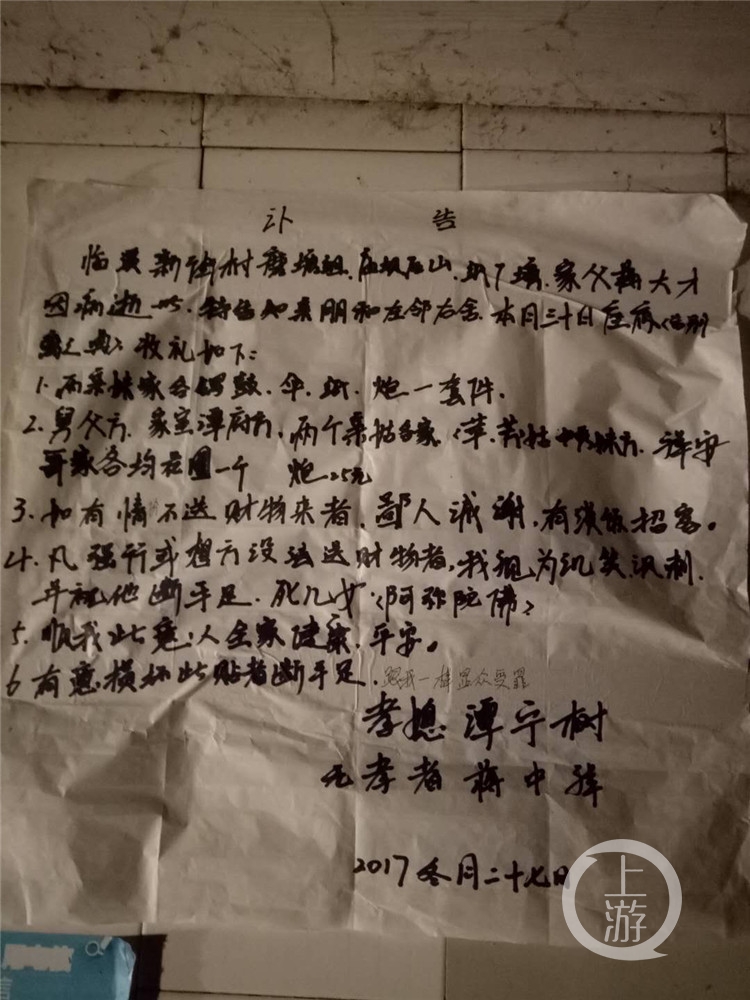 讣 告
新街村磨塘组 家父蒋大才
因病逝世.特告知亲朋和左邻右舍.本月三十日
收礼如下:
1.两亲妹家各锣鼓.伞.纸.炮一套件.
2.舅父方.家室潭府方,两个亲姑各家 祥安
哥家各均花圈一个 炮25元
3.如有情不送财物来者,鄙人诚谢,有烟饭招客。
4.凡强行或想方没法送财物者,我视为讥笑讽刺.
并祝他断手足.死儿女<阿弥陀佛>
5.顺我此意:人全家健康.平安。
6有意损坏此贴者断手足.跟我一样当众受罪
孝媳 潭宁树
孝者 蒋中
2017冬月二十七日
上游